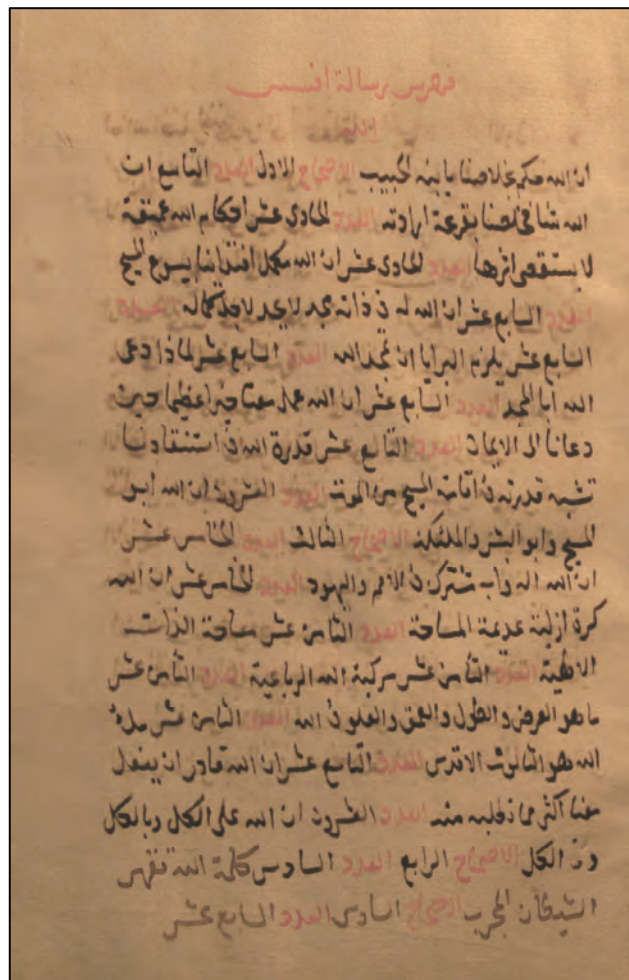 فهرس رسالة افسس
ان الله حكم بخلاصنا بابنه الحبيب الاصحاح الاول العدد التاسع ان
الله شا في خلصنا بقرعة ارادته العدد الحادي عشر احكام الله عميقة
لا يستقصى اثرها العدد الحادي عشر ان الله مكمل افتدانا بيسوع المسيح
العدد السابع عشر ان الله له في ذاته مجد لا يحد لاجل كماله
السابع عشر يلزم البرايا ان تمجد الله العدد السابع عشر لماذا دعى
الله ابا المجد العدد السابع عشر ان الله عمل معنا خيرا عظيما حيث
دعانا الى الايمان العدد التاسع عشر قدرة الله في استنقادنا
تشبه قدرته في اقامة المسيح من الموت العدد العشرون ان الله ابو
المسيح وابو البشر والملئكة الاصحاح الثالث العدد الخامس عشر
ان الله اله واب مشترك في الامم واليهود العدد الخامس عشر ان الله
كرة ازلية عديمة المساحة العدد الثامن عشر مساحة الذات
الالهية العدد الثامن عشر مركبة الله الرباعية العدد الثامن عشر
ما هو العرض والطول والعمق والعلو في الله العدد الثامن عشر ملء
الله هو الثالوث الاقدس العدد التاسع عشر ان الله قادر ان يفعل
معنا اكثر مما نطلبه منه العدد العشرون ان الله على الكل وبالكل
وفي الكل الاصحاح الرابع العدد السادس كلمة الله تقهر
الشيطان المجرب الاصحاح السادس العدد السابع عشر